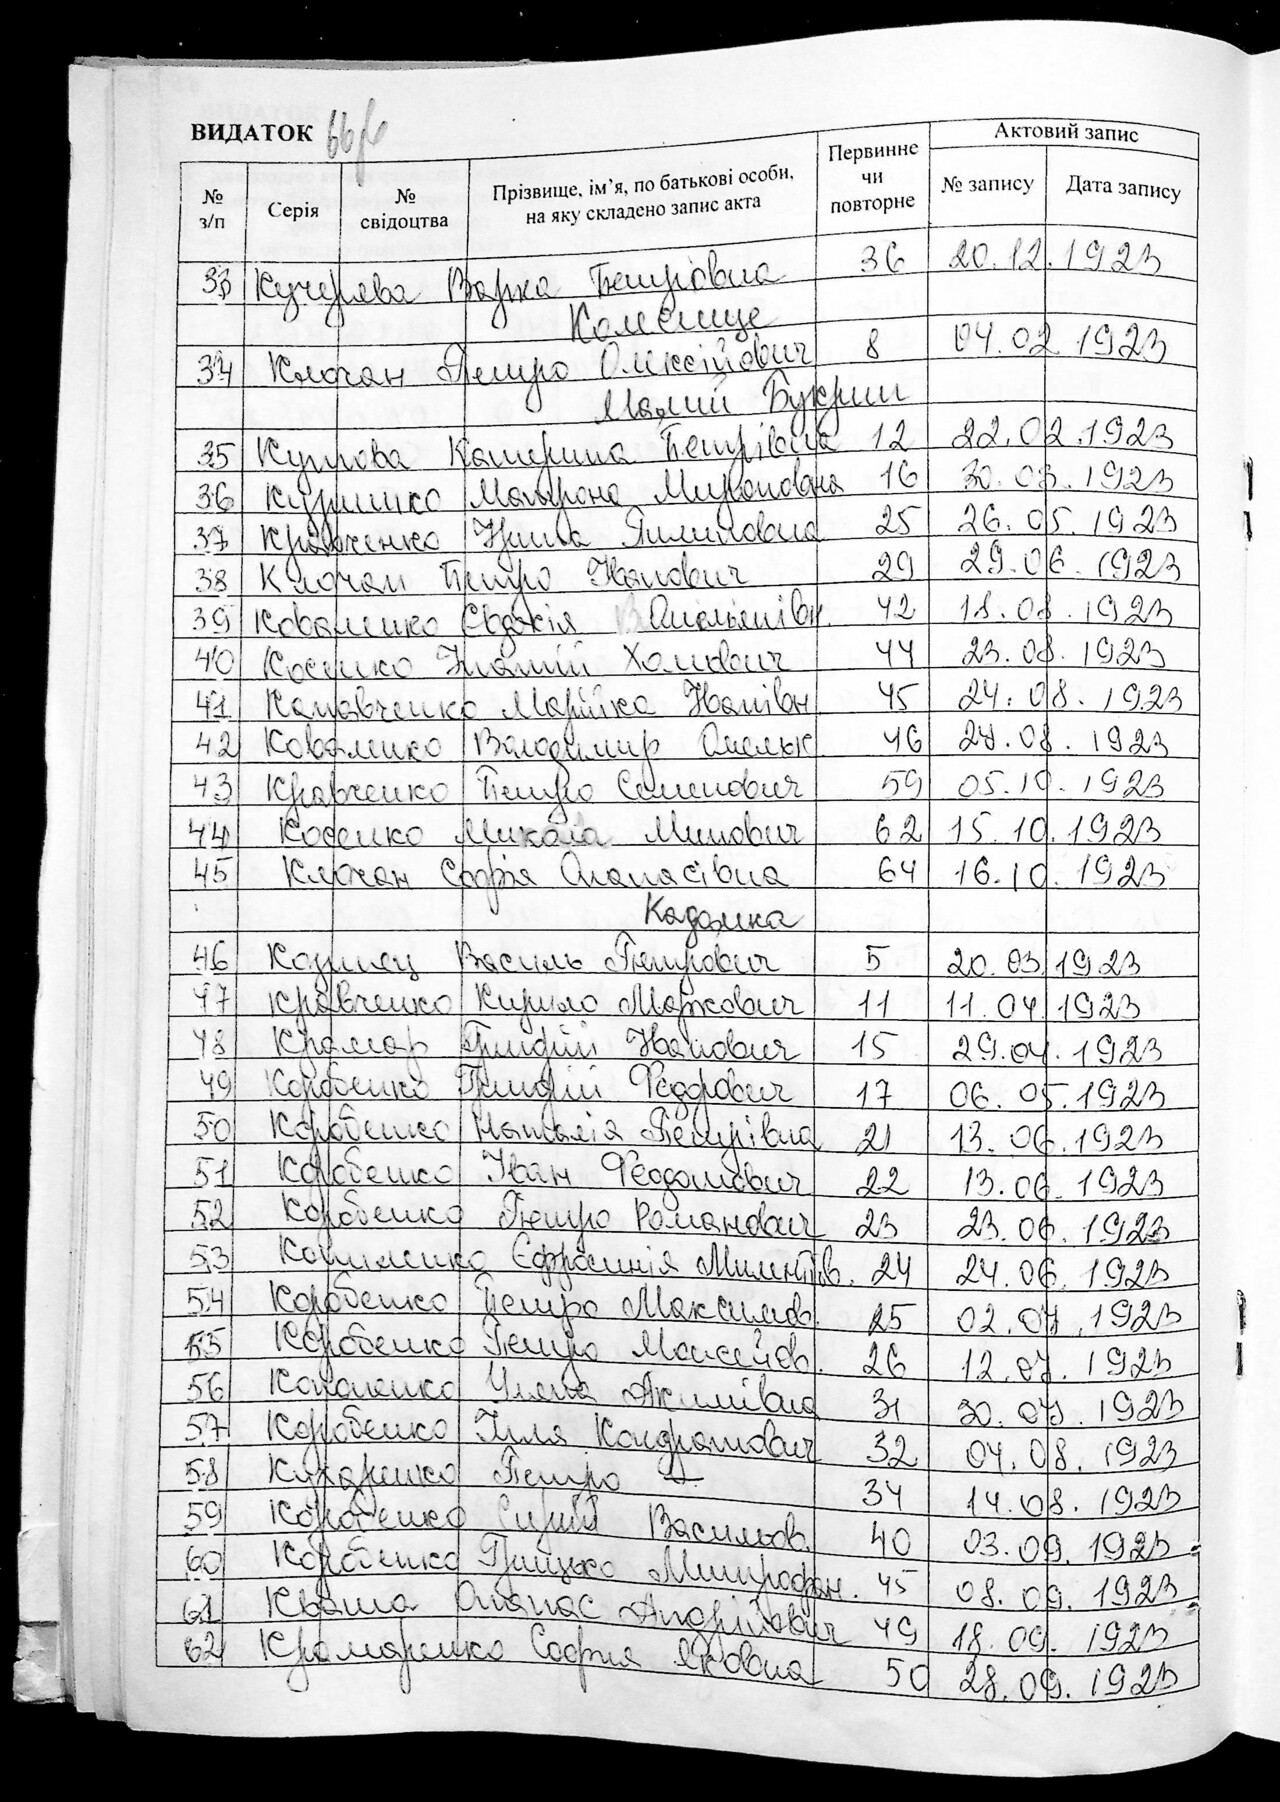 ВИДАТОК
№ з/п Серія № свідоцтва Прізвище, ім’я, по батькові особи, на яку складено запис акта Первинне чи повторне Актовий запис № запису Дата запису
33 Кучерява Варка Петрівна 36 20.12.1923
34 Ключан Петро Олексійович 8 04.02.1923
Малий Букрин
35 Катерина Петрівна 12 22.02.1923
36 Мотрона Мироновна 16 30.03.1923
37 Кравченко Пилиповна 25 26.05.1923
38 Ключан Петро Іванович 29 29.06.1923
39 Коваленко Євдокія Омельянівн. 42 18.08.1923
40 Косенко Гнатій Хомович 44 23.08.1923
41 Марійка Іванівн 45 24.08.1923
42 Коваленко Володимир Омельк 46 24.08.1923
43 Кравченко Петро Семенович 59 05.10.1923
44 Косенко Микола Минович 62 15.10.1923
45 Ключан Софія Опанасівна 64 16.10.1923
Кадомка
46 Василь Петрович 5 20.03.1923
47 Кравченко Кирило Маркович 11 11.04.1923
48 Крамар Тимофій Іванович 15 29.04.1923
49 Коробенко Тимофій Федорович 17 06.05.1923
50 Коробенко Наталія Петрівна 21 13.06.1923
51 Коробенко Іван Феодотович 22 13.06.1923
52 Коробенко Петро Романович 23 23.06.1923
53 Єфросинія 24 24.06.1923
54 Коробенко Петро Максимов. 25 02.07.1923
55 Коробенко Петро Мойсейов. 26 12.07.1923
56 Уляна Акимівна 31 30.07.1923
57 Коробенко Ілля Кондратович 32 04.08.1923
58 Кухаренко Петро — 34 14.08.1923
59 Коробенко Сергій Васильов. 40 03.09.1923
60 Коробенко Грицько Митрофан. 45 08.09.1923
61 Кваша Опанас Андрійович 49 18.09.1923
62 Крамаренко Софія Яковна 50 28.09.1923